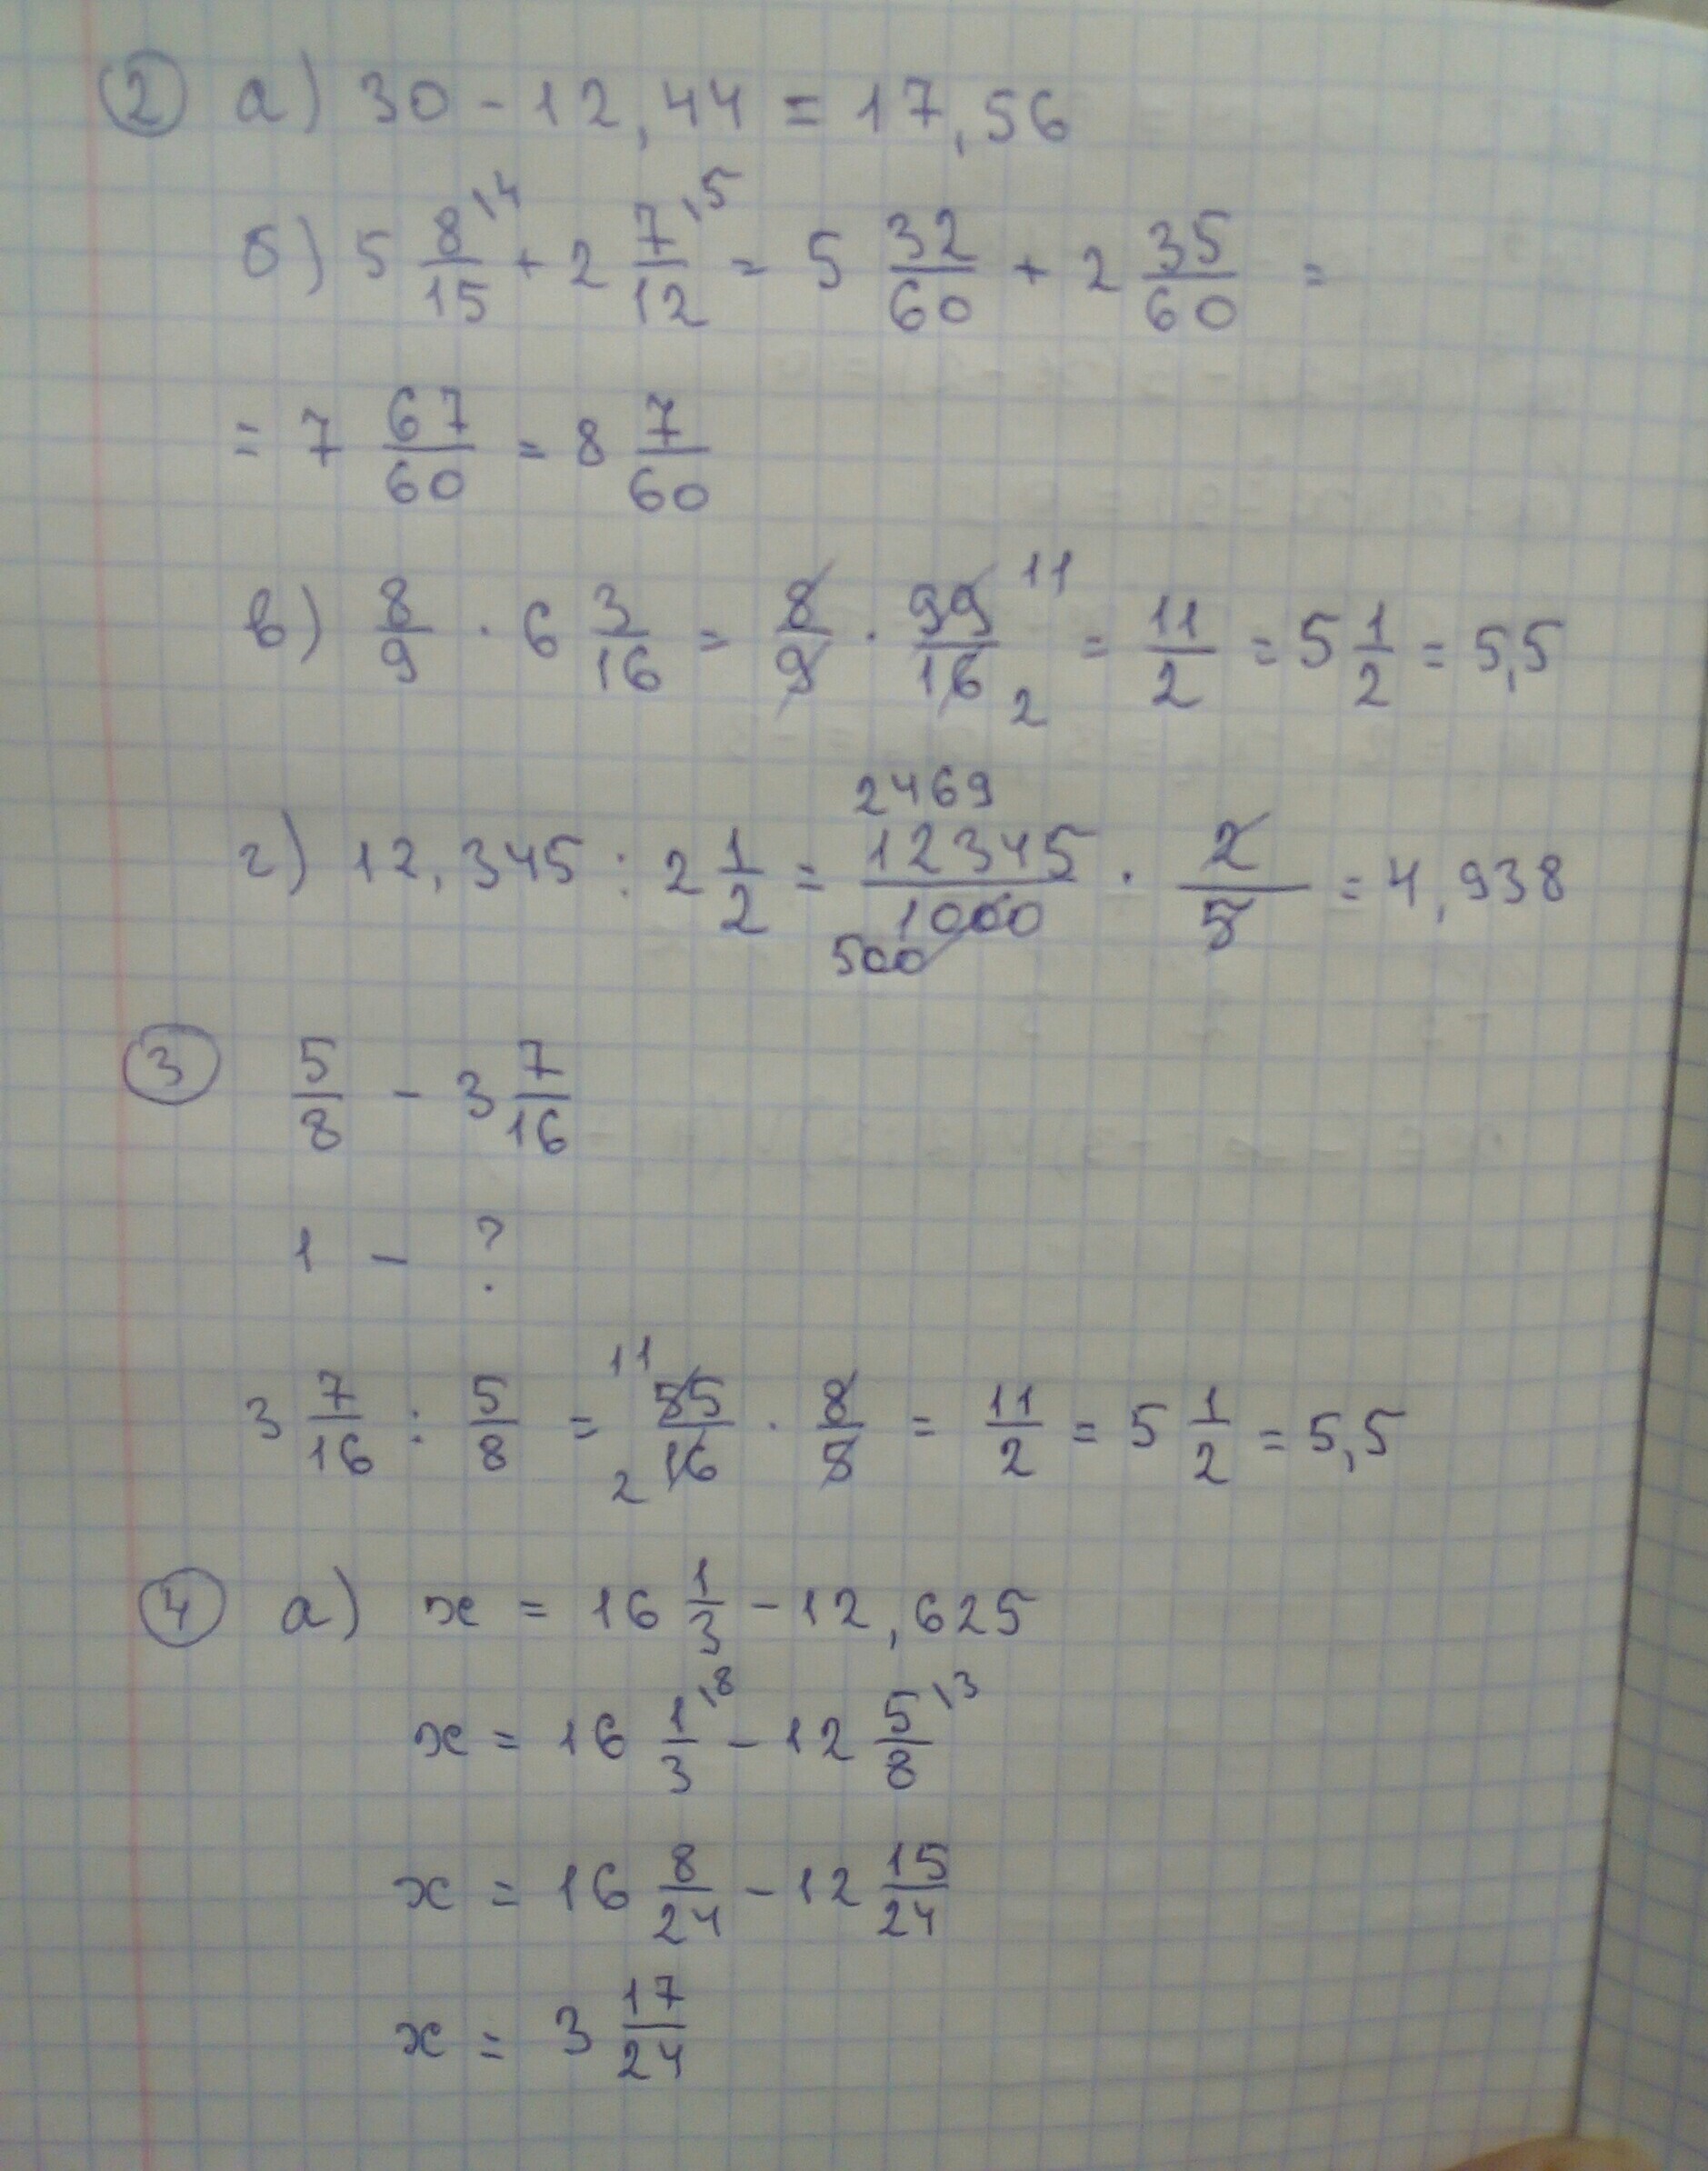 2 а) 30 - 12,44 = 17,56
б) 5 8/15 \4 + 2 7/12 \5 = 5 32/60 + 2 35/60 =
= 7 67/60 = 8 7/60
в) 8/9 · 6 3/16 = 8/9 · 99/16 11 2 = 11/2 = 5 1/2 = 5,5
г) 12,345 : 2 1/2 = 2469 12345/1000 500 · 2/5 = 4,938
3 5/8 - 3 7/16
1 - ?
3 7/16 : 5/8 = 11 2 55/16 · 8/5 = 11/2 = 5 1/2 = 5,5
4 а) x = 16 1/3 - 12,625
x = 16 1/3 \8 - 12 5/8 \3
x = 16 8/24 - 12 15/24
x = 3 17/24